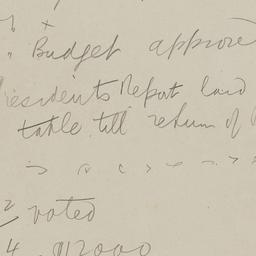 " Budget approve
residents Report laid
table till return of
2 voted
4